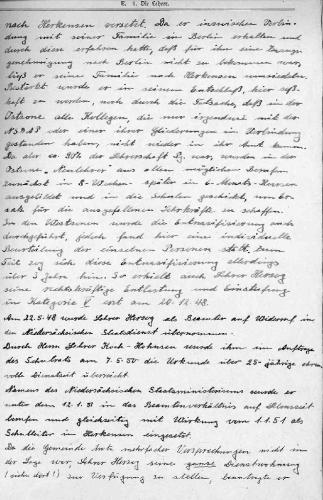 E. 1. Die Lehrer.
nach Herkensen versetzt. Da er inzwischen Verbin-
dung mit seiner Familie in Berlin erhalten und
durch diese erfahren hatte, daß für ihn eine Zuzugs-
genehmigung nach Berlin nicht zu bekommen war,
ließ er seine Familie nach Herkensen umsiedeln.
Bestärkt wurde er in seinem Entschluß, hier seß-
haft zu werden, noch durch die Tatsache, daß in der
Ostzone alle Kollegen, die nur irgendwie mit der
NSDAP oder einer ihrer Gliederungen in Verbindung
gestanden haben, nicht wieder in ihr Amt kamen.
Da aber ca. 90% der Lehrerschaft Pg. war, wurden in der
Ostzone "Neulehrer" aus allen möglichen Berufen
zunächst in 8-Wochen- später in 6-Monats-Kursen
ausgebildet und in die Schulen geschickt, um Er-
satz für die ausgefallenen Lehrkräfte zu schaffen.
In den Westzonen wurde die Entnazifizierung auch
durchgeführt, jedoch fand hier eine individuelle
Beurteilung der einzelnen Personen statt. Zum
Teil zog sich diese Entnazifizierung allerdings
über 3 Jahre hin. So erhielt auch Lehrer Herzog
seine rechtskräftige Entlastung und Einstufung
in Kategorie V erst am 12.48.
Am 22.5.48 wurde Lehrer Herzog als Beamter auf Widerruf in
den Niedersächsischen Staatsdienst übernommen.
Durch Herrn Lehrer Koch-Hohnsen wurde ihm im Auftrage
des Schulrats am 7.5.50 die Urkunde über 25-jährige ehren-
volle Dienstzeit überreicht.
Namens des Niedersächsischen Staatsministeriums wurde er
unter dem 12.1.51 in das Beamtenverhältnis auf Lebenszeit
berufen und gleichzeitig mit Wirkung vom 1.1.51 als
Schulleiter in Herkensen eingesetzt.
Da die Gemeinde trotz mehrfacher Versprechungen nicht in
der Lage war, Lehrer Herzog seine ganze Dienstwohnung
(siehe dort!) zur Verfügung zu stellen, beantragte er